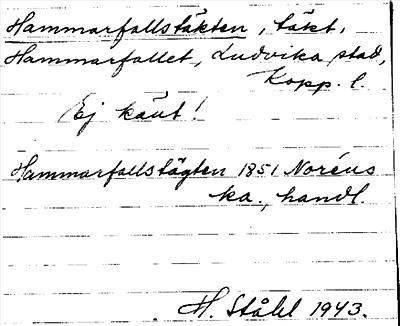 Hammarfallstäkten, täkt,
Hammarfallet, Ludvika stad,
Kopp. l.
Ej känt!
Hammarfallstägten 1851 Noréns
ka., handl.
H. Ståhl 1943.